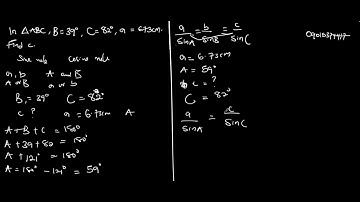 In △ABC, B=39°, C=82°, a=6.73cm.
Find c.
Sine rule Cosine rule
a, b A and B
A or B a or b
B = 39° C = 82°
c ? a = 6.73cm A
A + B + C = 180°
A + 39 + 82 = 180°
A + 121° = 180°
A = 180° - 121° = 59°
a/sinA = b/sinB = c/sinC
a = 6.73cm
A = 59°
c = ?
C = 82°
a/sinA = c/sinC